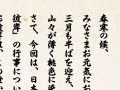 春寒の候、
みなさまお元気にお
三月も半ばを迎え、
山々が薄く桃色に染
さて、今回は、日本
彼岸」の行事につい